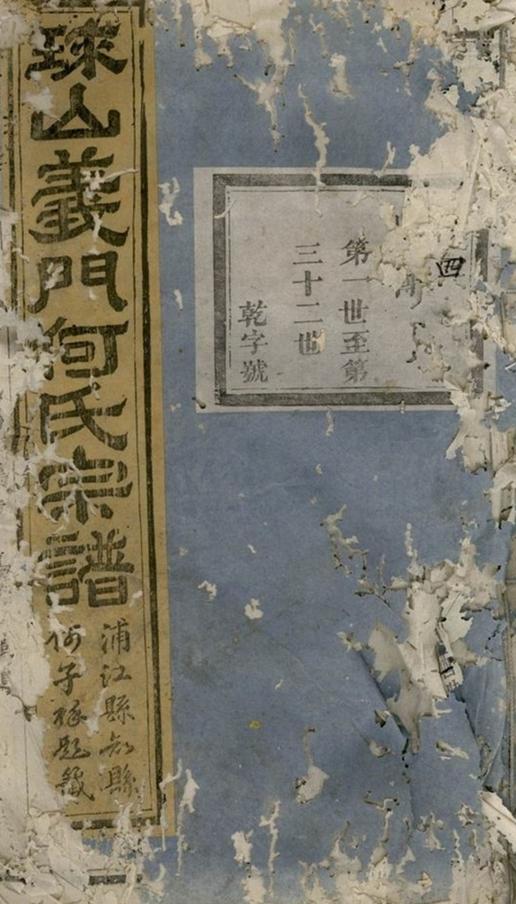 球山義門何氏宗譜
浦江縣知縣
何子祥題籤
四
第一世至第
三十二世
乾字號